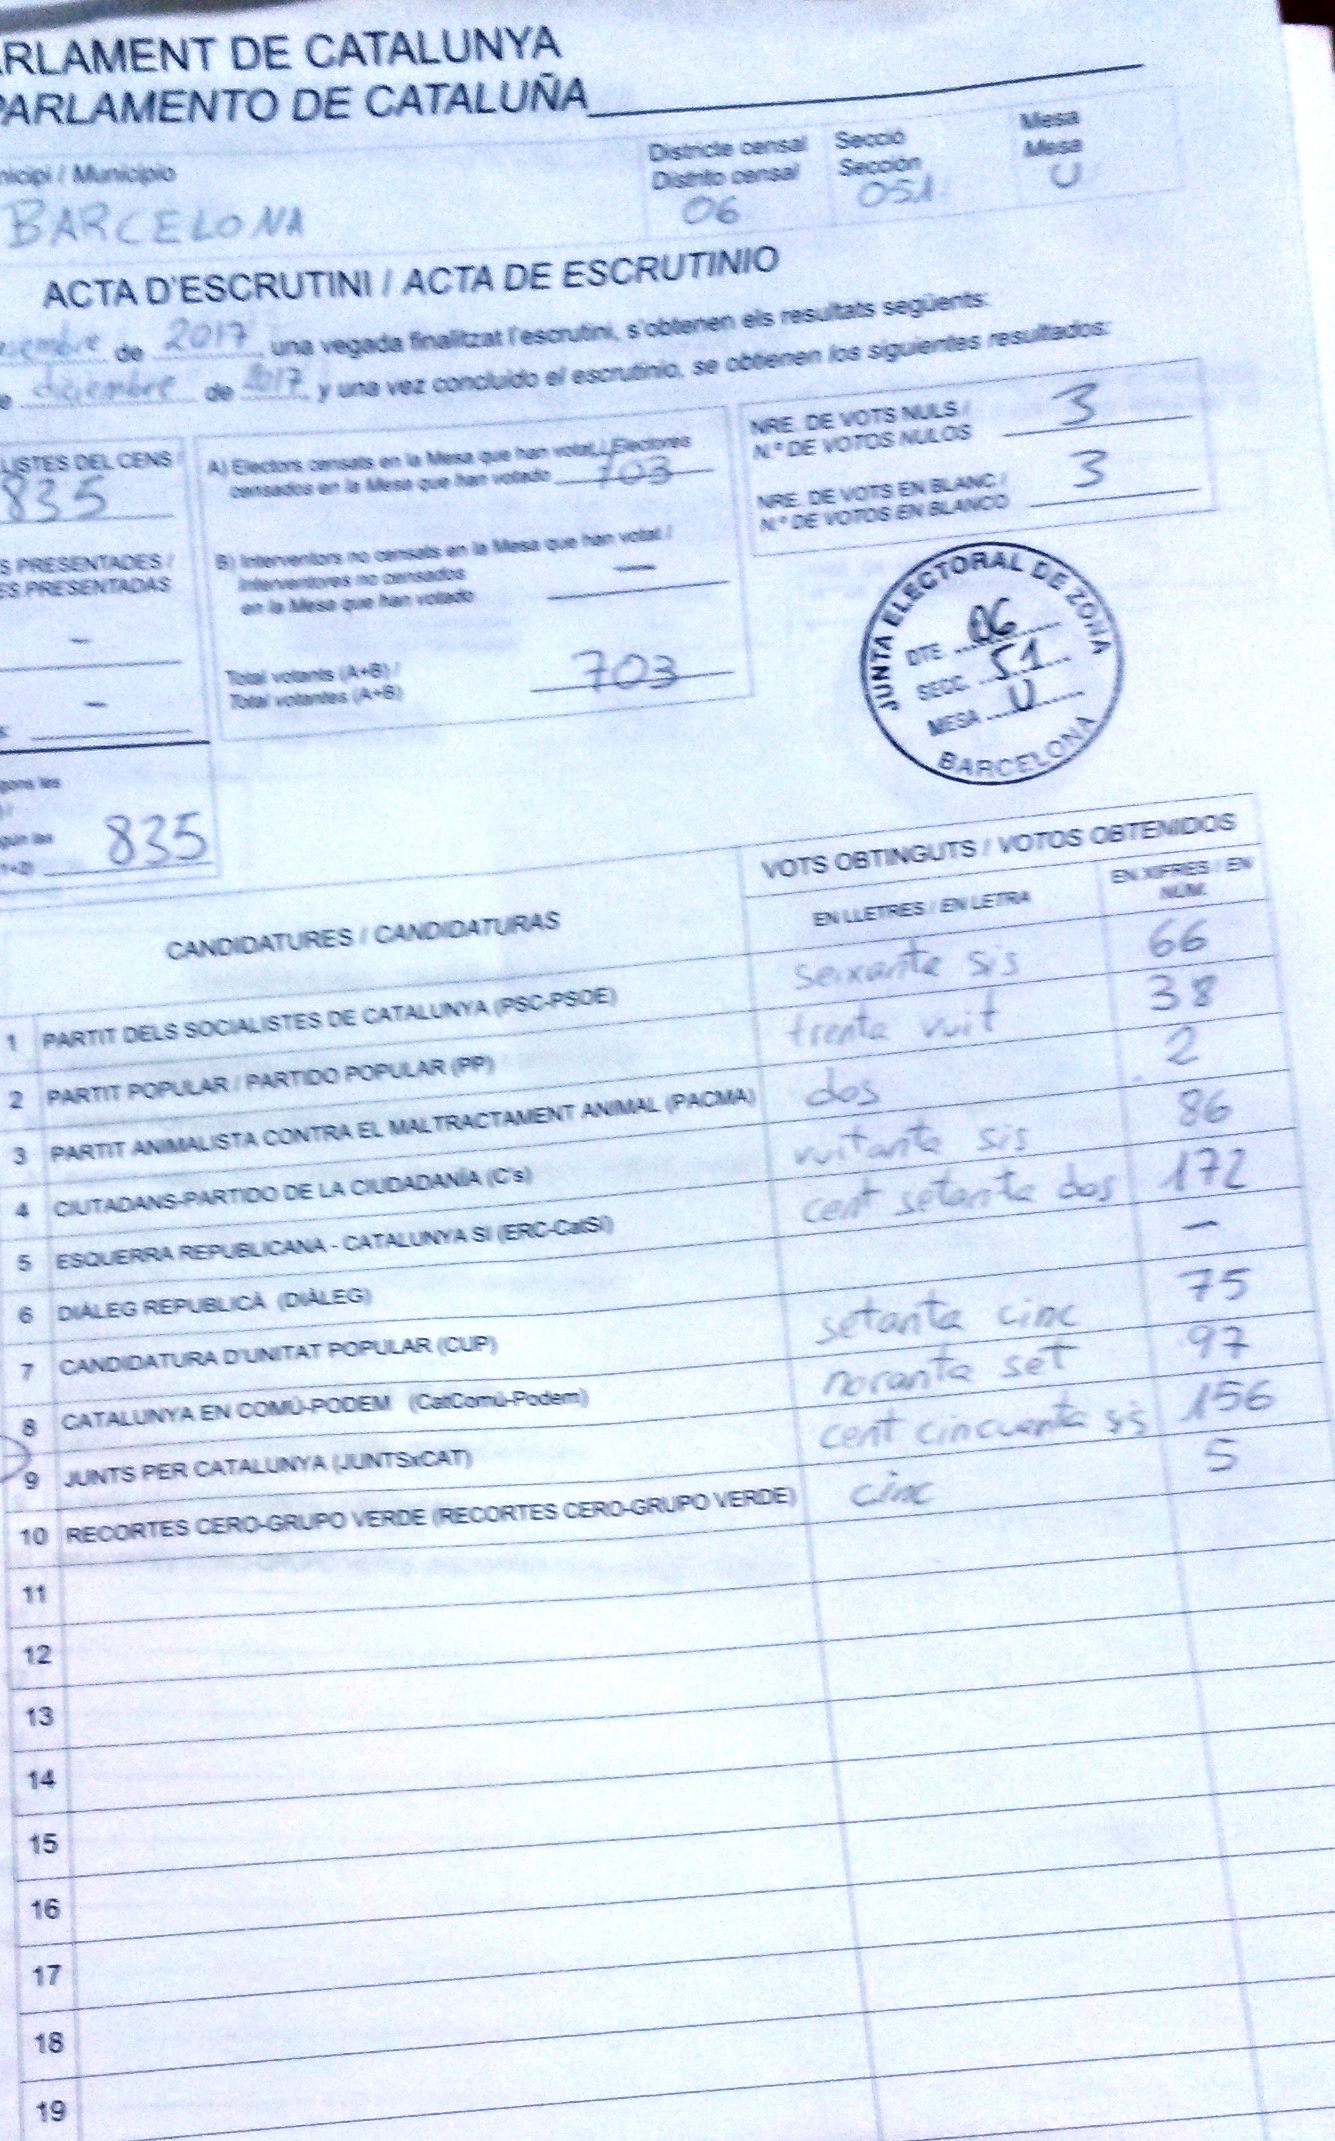 PARLAMENT DE CATALUNYA
PARLAMENTO DE CATALUÑA
nicipi / Municipio
BARCELONA
Districte censal
Distrito censal
06
Secció
Sección
051
Mesa
Mesa
U
ACTA D'ESCRUTINI / ACTA DE ESCRUTINIO
de 2017 una vegada finalitzat l'escrutini, s'obtenen els resultats següents:
e diciembre de 2017 y una vez concluido el escrutinio, se obtienen los siguientes resultados:
LISTES DEL CENS /
835
S PRESENTADES /
ES PRESENTADAS
-
-
gons les
gún las
1+2)
835
A) Electors censats en la Mesa que han votat / Electores
censados en la Mesa que han votado 703
B) Interventors no censats en la Mesa que han votat /
Interventores no censados
en la Mesa que han votado
—
Total votants (A+B) /
Total votantes (A+B)
703
NRE. DE VOTS NULS /
N.º DE VOTOS NULOS 3
NRE. DE VOTS EN BLANC /
N.º DE VOTOS EN BLANCO 3
JUNTA ELECTORAL DE ZONA
DTE. 06
SECC. 51
MESA U
BARCELONA
CANDIDATURES / CANDIDATURAS
VOTS OBTINGUTS / VOTOS OBTENIDOS
EN LLETRES / EN LETRA
EN XIFRES / EN
NÚM.
1 PARTIT DELS SOCIALISTES DE CATALUNYA (PSC-PSOE) seixanta sis 66
2 PARTIT POPULAR / PARTIDO POPULAR (PP) trenta vuit 38
3 PARTIT ANIMALISTA CONTRA EL MALTRACTAMENT ANIMAL (PACMA) dos 2
4 CIUTADANS-PARTIDO DE LA CIUDADANÍA (C's) vuitanta sis 86
5 ESQUERRA REPUBLICANA - CATALUNYA SÍ (ERC-CatSí) cent setanta dos 172
6 DIÀLEG REPUBLICÀ (DIÀLEG) —
7 CANDIDATURA D'UNITAT POPULAR (CUP) setanta cinc 75
8 CATALUNYA EN COMÚ-PODEM (CatComú-Podem) noranta set 97
9 JUNTS PER CATALUNYA (JUNTSxCAT) cent cincuanta sis 156
10 RECORTES CERO-GRUPO VERDE (RECORTES CERO-GRUPO VERDE) cinc 5
11
12
13
14
15
16
17
18
19